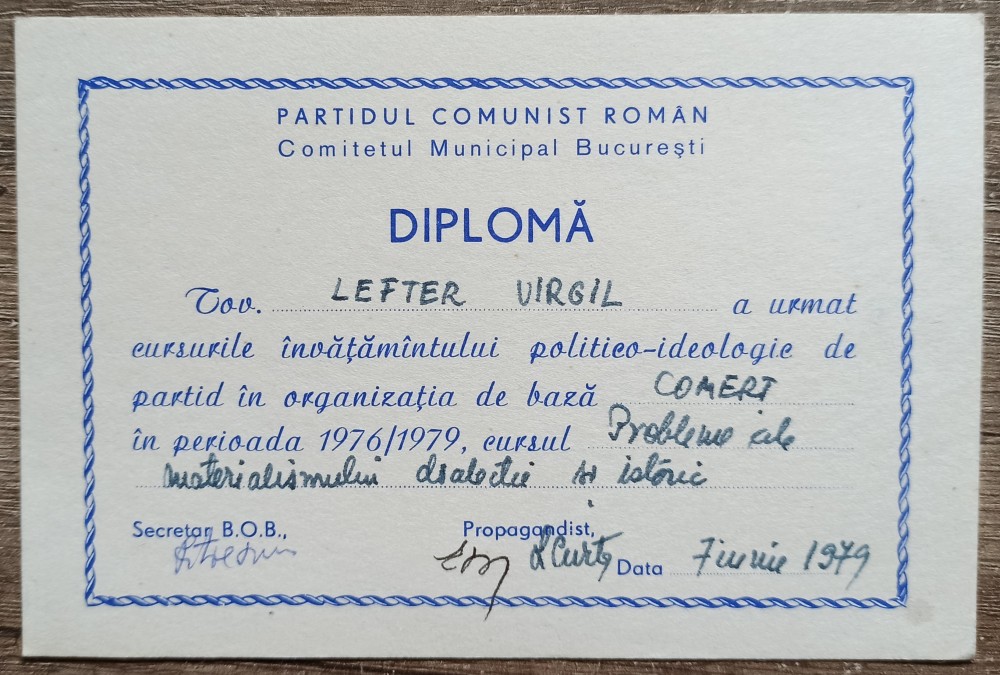 PARTIDUL COMUNIST ROMÂN
Comitetul Municipal Bucureşti
DIPLOMĂ
Tov. LEFTER VIRGIL a urmat
cursurile învăţămîntului politico-ideologic de
partid în organizaţia de bază COMERT
în perioada 1976/1979, cursul Probleme ale
materialismului dialectic si istoric
Secretar B.O.B., Propagandist,
Data 7 iunie 1979